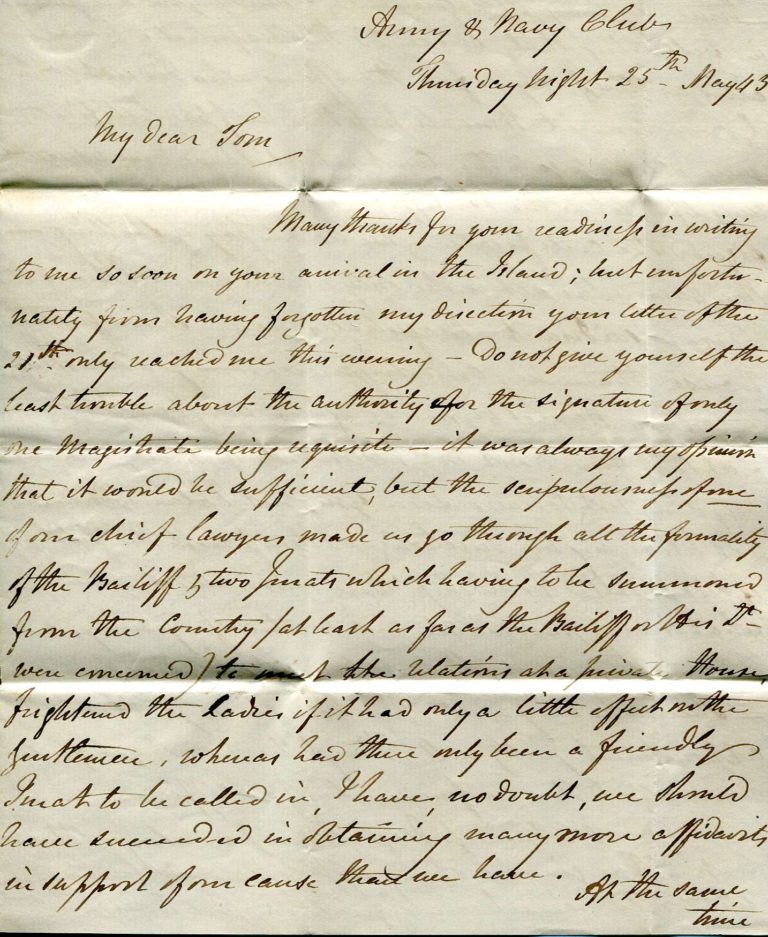 Army & Navy Club
Thursday Night 25th May 43
My dear Tom
Many thanks for your readiness in writing
to me so soon on your arrival in the Island; but unfortu-
nately from having forgotten my direction your letter of the
21st only reached me this evening – Do not give yourself the
least trouble about the authority for the signature of only
one Magistrate being requisite – it was always my opinion
that it would be sufficient, but the scrupulousness of one
of our chief Lawyers made us go through all the formality
of the Bailiff & two Jurats which having to be summoned
from the Country (at least as far as the Bailiff or His Dt
were concerned) to meet the relations at a private House,
frightened the Ladies if it had only a little effect on the
Gentlemen, whereas had there only been a friendly
Jurat to be called in, I have, no doubt, we should
have succeeded in obtaining many more affidavits
in support of our cause than we have. At the same
time